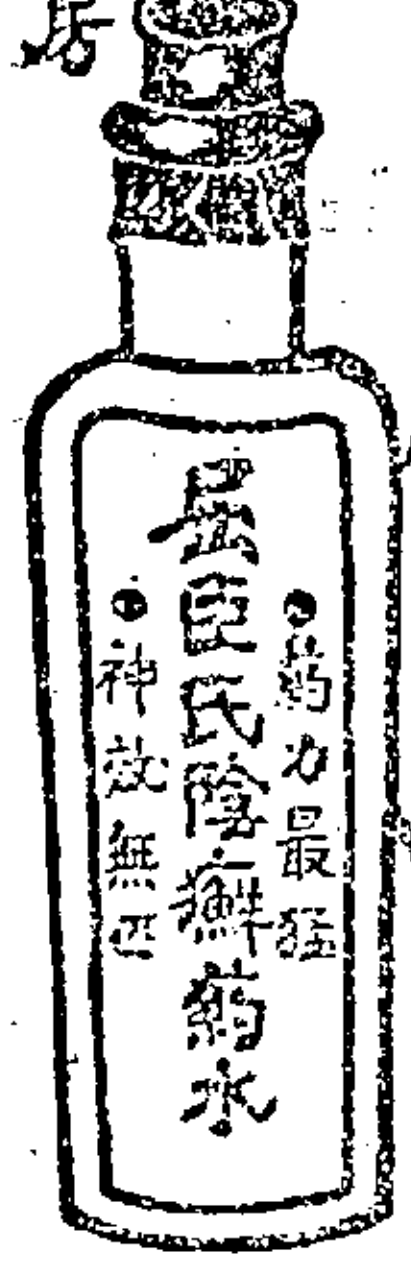 房
葯力最猛
屈臣氏陰癬葯水
神效無匹